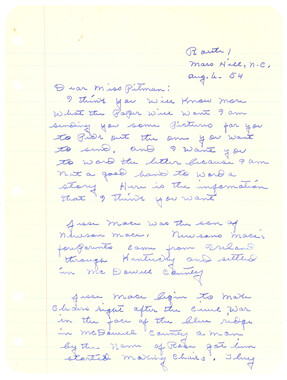 Route 1
Mars Hill, N.C.
Aug. 6 - 54
Dear Miss Pitman:
I think you will know more
What the Paper will Want I am
sending you some Pictures for you
to Pick out the ones you want
to send. and I want you
to word the letter because I am
Not a good hand to word a
story Here is the infomation
that I think you want
Jesse Mace was the son of
Newson Mace. Newsons Mace's
forparints came from Ireland
through Kentucky and settled
in Mc Dowell County
Jesse Mace begin to make
Chairs right after the Civil War
in the face of the blue ridge
in McDowell County a man
by the Name of Rose got him
started making Chairs. They